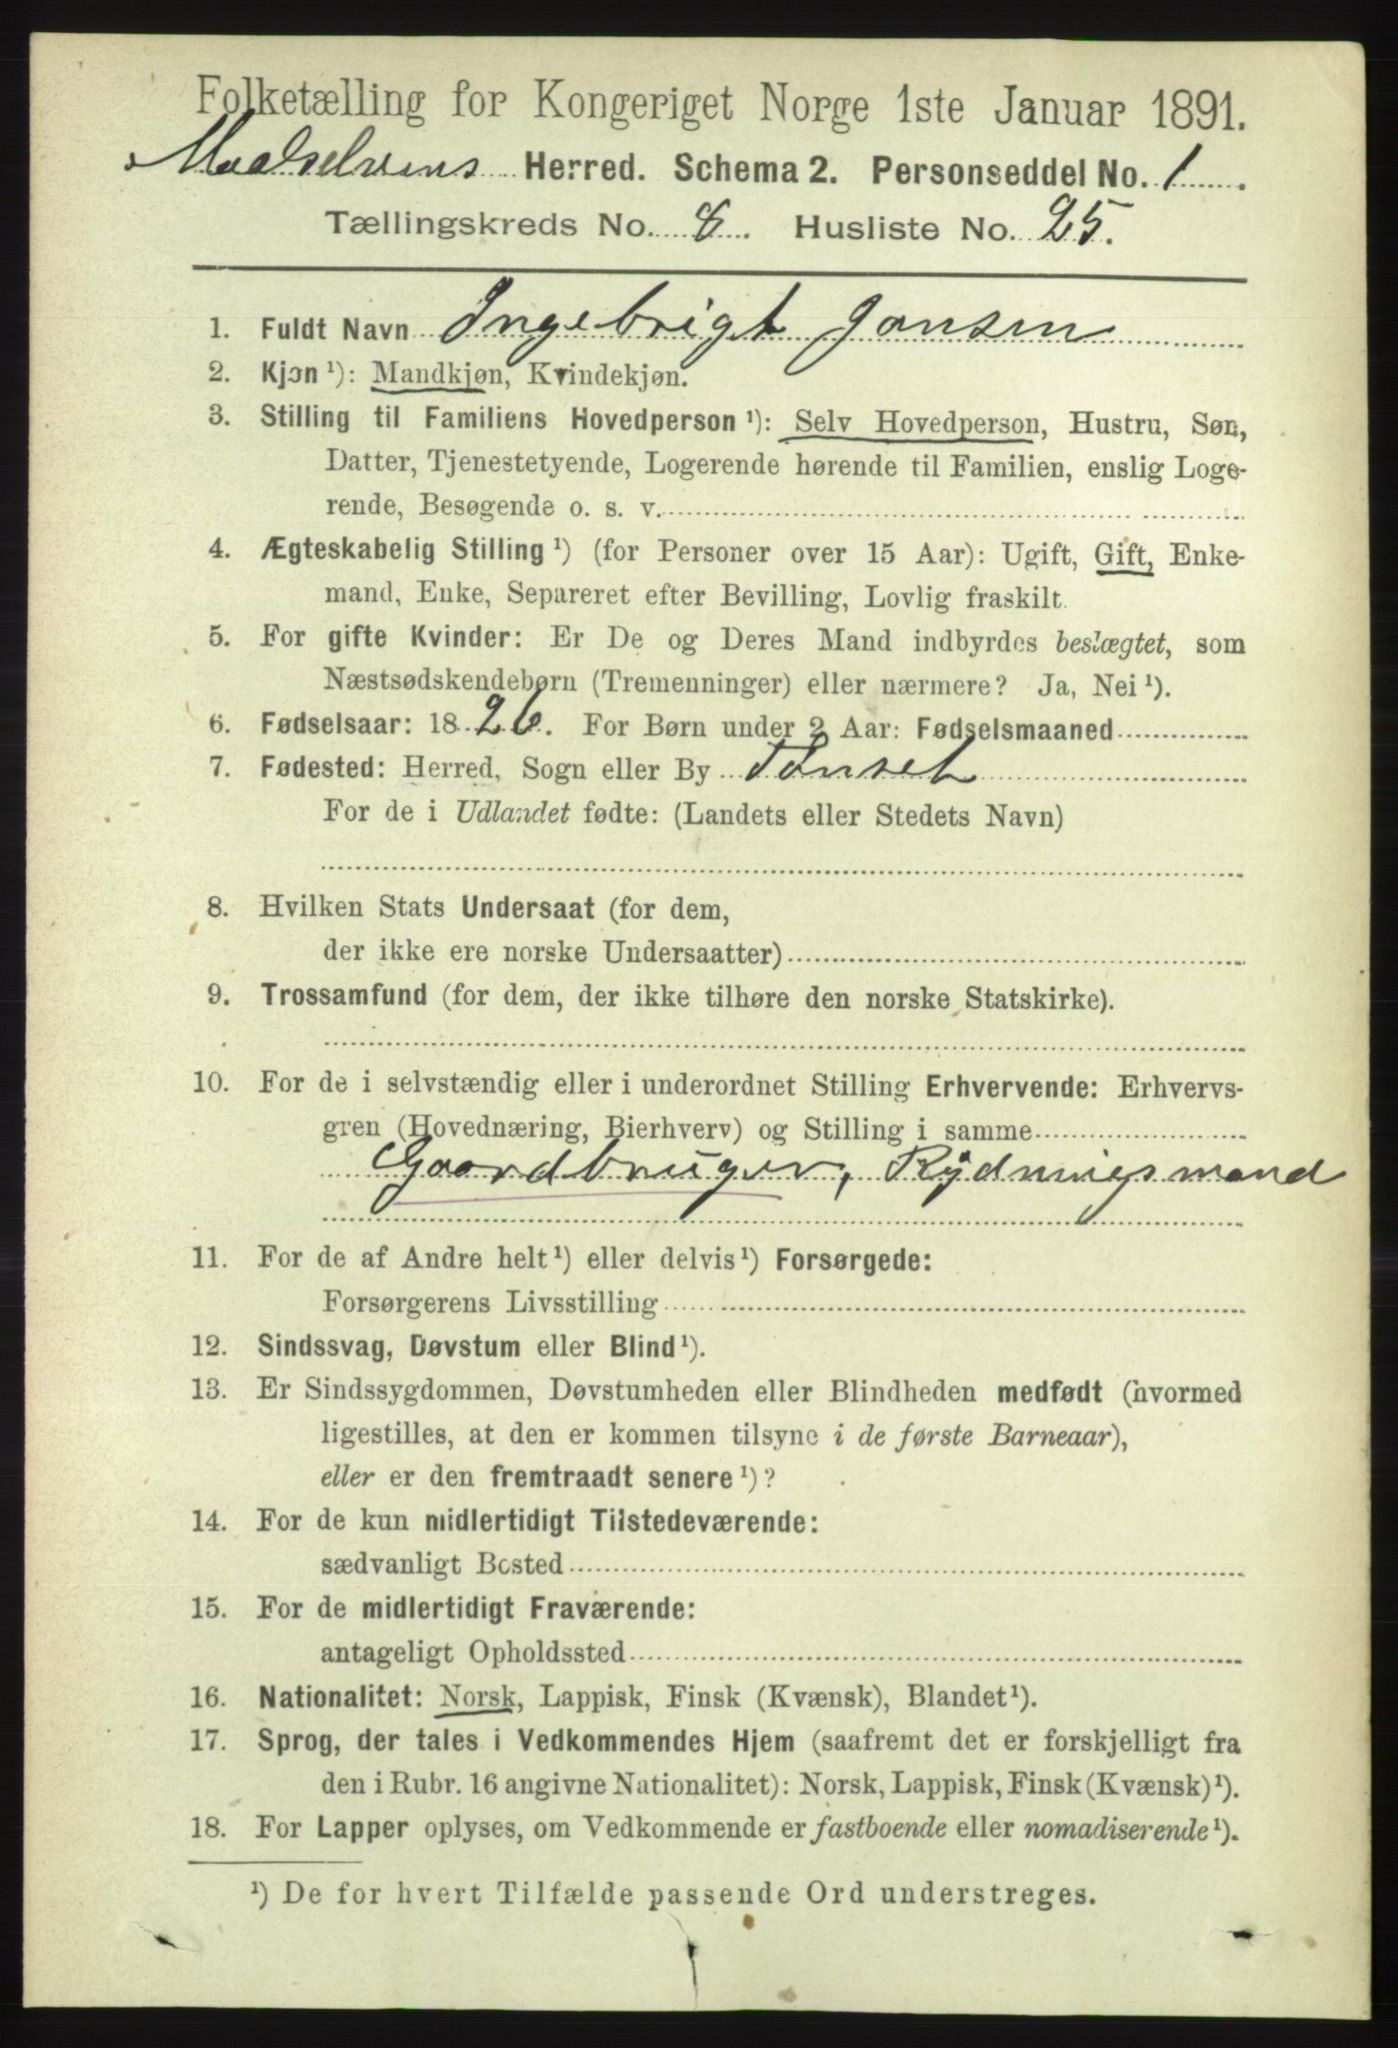 Folketælling for Kongeriget Norge 1ste Januar 1891.
Maalselvens Herred. Schema 2. Personseddel No. 1.
Tællingskreds No. 8. Husliste No. 25.
1. Fuldt Navn Ingebrigt Jonsen
2. Kjøn ¹): Mandkjøn, Kvindekjøn.
3. Stilling til Familiens Hovedperson ¹): Selv Hovedperson, Hustru, Søn,
Datter, Tjenestetyende, Logerende hørende til Familien, enslig Loge-
rende, Besøgende o. s. v.
4. Ægteskabelig Stilling ¹) (for Personer over 15 Aar): Ugift, Gift, Enke-
mand, Enke, Separeret efter Bevilling, Lovlig fraskilt.
5. For gifte Kvinder: Er De og Deres Mand indbyrdes beslægtet, som
Næstsødskendebørn (Tremenninger) eller nærmere? Ja, Nei ¹).
6. Fødselsaar: 1826. For Børn under 2 Aar: Fødselsmaaned
7. Fødested: Herred, Sogn eller By Tønset
For de i Udlandet fødte: (Landets eller Stedets Navn)
8. Hvilken Stats Undersaat (for dem,
der ikke ere norske Undersaatter)
9. Trossamfund (for dem, der ikke tilhøre den norske Statskirke).
10. For de i selvstændig eller i underordnet Stilling Erhvervende: Erhvervs-
gren (Hovednæring, Bierhverv) og Stilling i samme
Gaardbruger, Rydningsmand
11. For de af Andre helt ¹) eller delvis ¹) Forsørgede:
Forsørgerens Livsstilling
12. Sindssvag, Døvstum eller Blind ¹).
13. Er Sindssygdommen, Døvstumheden eller Blindheden medfødt (hvormed
ligestilles, at den er kommen tilsyne i de første Barneaar),
eller er den fremtraadt senere ¹)?
14. For de kun midlertidigt Tilstedeværende:
sædvanligt Bosted
15. For de midlertidigt Fraværende:
antageligt Opholdssted
16. Nationalitet: Norsk, Lappisk, Finsk (Kvænsk), Blandet ¹).
17. Sprog, der tales i Vedkommendes Hjem (saafremt det er forskjelligt fra
den i Rubr. 16 angivne Nationalitet): Norsk, Lappisk, Finsk (Kvænsk) ¹).
18. For Lapper oplyses, om Vedkommende er fastboende eller nomadiserende ¹).
¹) De for hvert Tilfælde passende Ord understreges.